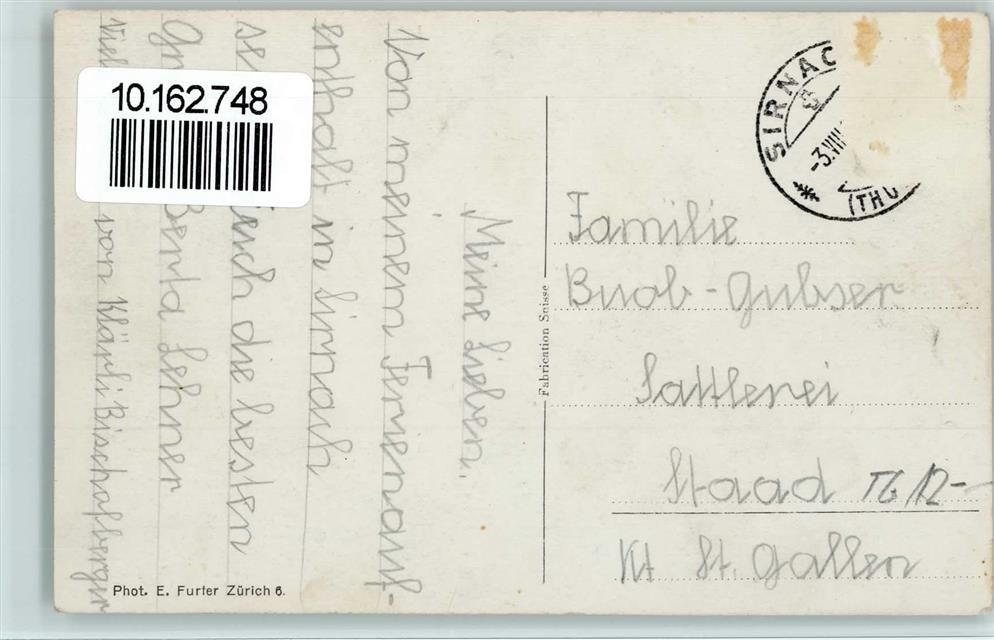 10.162.748
SIRNAC
-3.VIII
(THU
Meine Lieben.
Von meinem Ferienauf-
enthalt in Sirnach
Euch die besten
Berta Lehner
von Klärli Bischofberger
Fabrication Suisse
Familie
Buob-Gubser
Sattlerei
Staad TG 12-
Kt St. Gallen
Phot. E. Furter Zürich 6.